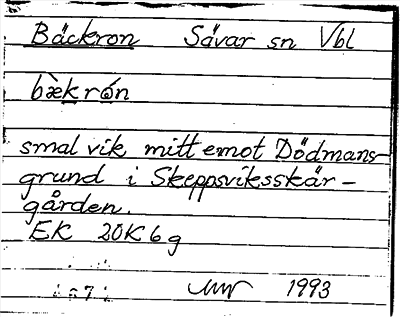 Bäckron Sävar sn Vbl
bæ̀krón
smal vik mitt emot Dödmans-
grund i Skeppsviksskär-
gården.
EK 20K6g
1993